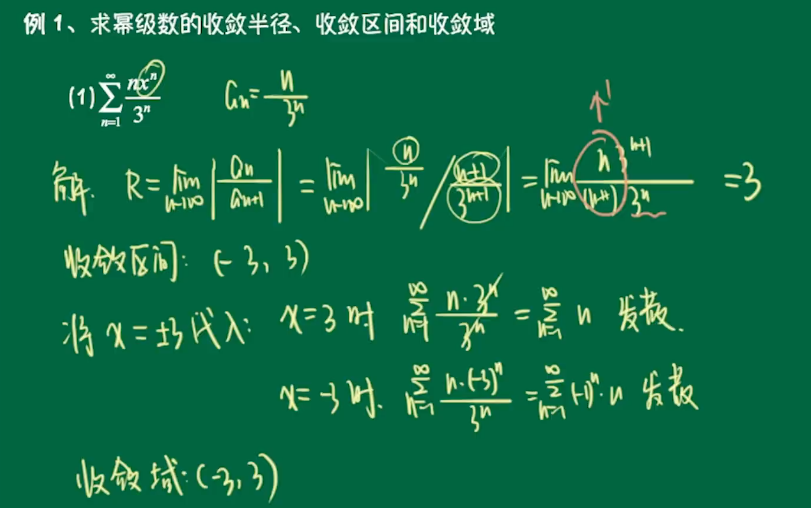 例 1、求幂级数的收敛半径、收敛区间和收敛域
(1) ∑_{n=1}^{∞} nx^n/3^n  a_n = n/3^n
解. R = lim_{n→∞} |a_n/a_{n+1}| = lim_{n→∞} | n/3^n / (n+1)/3^{n+1} | = lim_{n→∞} n 3^{n+1}/(n+1) 3^n = 3
↑1
收敛区间: (-3, 3)
将 x = ±3 代入: x = 3 时 ∑_{n=1}^{∞} n·3^n/3^n = ∑_{n=1}^{∞} n 发散.
x = -3 时. ∑_{n=1}^{∞} n·(-3)^n/3^n = ∑_{n=1}^{∞} (-1)^n·n 发散
收敛域: (-3, 3)